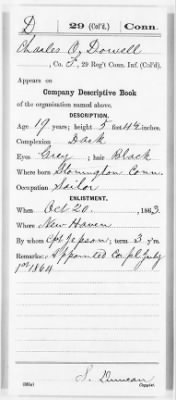 D | 29 (Col'd.) | Conn.
Charles O. Dowell
, Co. F, 29 Reg't Conn. Inf. (Col'd).
Appears on
Company Descriptive Book
of the organization named above.
DESCRIPTION.
Age 19 years; height 5 feet 4½ inches.
Complexion Dark
Eyes Grey ; hair Black
Where born Stonington Conn.
Occupation Sailor
ENLISTMENT.
When Oct 20. , 1863.
Where New Haven
By whom Cpt Jepson ; term 3 y'rs.
Remarks: Appointed Corpl July
1st 1864
S. Duncan
Copyist.